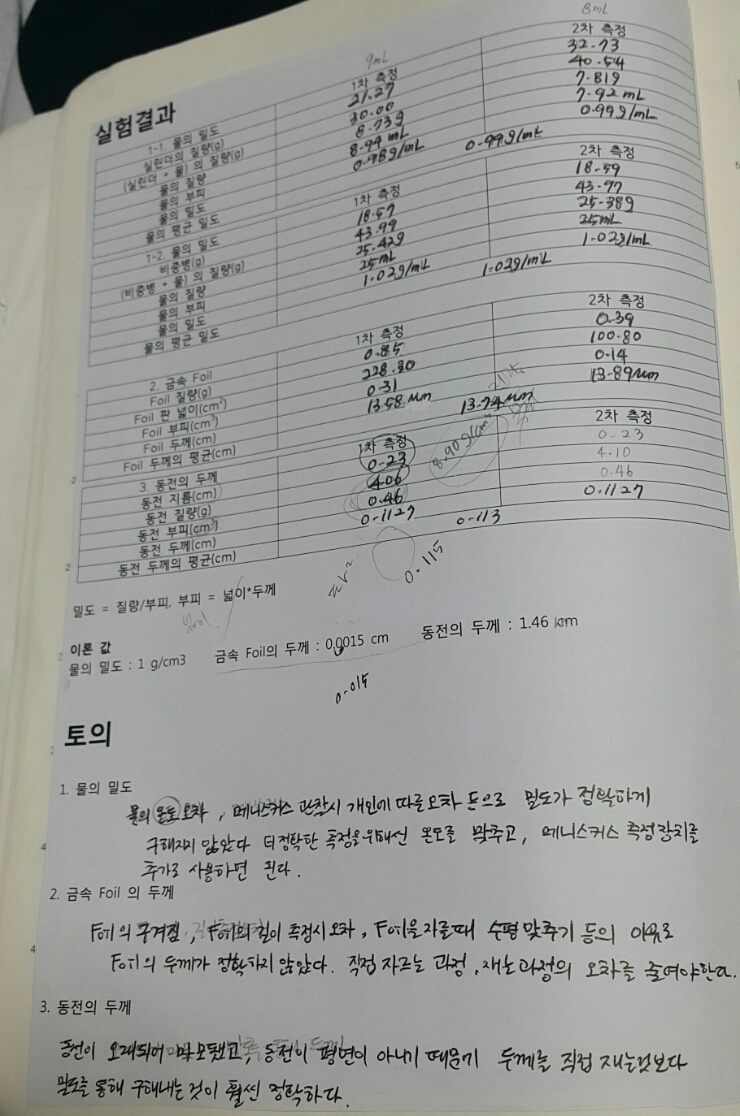 9mL
8mL
실험결과
1-1. 물의 밀도 1차 측정 2차 측정
실린더의 질량(g) 21.27 32.73
(실린더 + 물) 의 질량(g) 30.00 40.54
물의 질량 8.73g 7.81g
물의 부피 8.94 mL 7.92 mL
물의 밀도 0.98g/mL 0.99g/mL
물의 평균 밀도 0.99g/mL
1-2. 물의 밀도 1차 측정 2차 측정
비중병(g) 18.57 18.59
(비중병 + 물) 의 질량(g) 43.99 43.97
물의 질량 25.42g 25.38g
물의 부피 25mL 25mL
물의 밀도 1.02g/mL 1.02g/mL
물의 평균 밀도 1.02g/mL
2. 금속 Foil 1차 측정 2차 측정
Foil 질량(g) 0.85 0.39
Foil 판 넓이(cm²) 228.30 100.80
Foil 부피(cm³) 0.31 0.14
Foil 두께(cm) 13.58 μm 13.89μm
Foil 두께의 평균(cm) 13.74μm
3. 동전의 두께 1차 측정 2차 측정
동전 지름(cm) 0.23 0.23
동전 질량(g) 4.06 4.10
동전 부피(cm³) 0.46 0.46
동전 두께(cm) 0.1127 0.1127
동전 두께의 평균(cm) 0.113
8.90g/cm³
πr².
0.115
밀도 = 질량/부피, 부피 = 넓이*두께
이론 값
물의 밀도 : 1 g/cm3 금속 Foil의 두께 : 0.0015 cm 동전의 두께 : 1.46 km
0.015
토의
1. 물의 밀도
물의 온도 오차, 메니스커스 관찰시 개인에 따른 오차 등으로 밀도가 정확하게
구해지지 않았다 더 정확한 측정을 위해선 온도를 맞추고, 메니스커스 측정장치를
추가로 사용하면 된다.
2. 금속 Foil 의 두께
Foil의 구겨짐, Foil의 길이 측정시 오차, Foil을 자를때 수평 맞추기 등의 이유로
Foil의 두께가 정확하지 않았다. 직접 자르는 과정, 재는 과정의 오차를 줄여야한다.
3. 동전의 두께
동전이 오래되어 마모됐고, 동전이 평면이 아니기 때문에 두께를 직접 재는것보다
밀도를 통해 구해내는 것이 훨씬 정확하다.